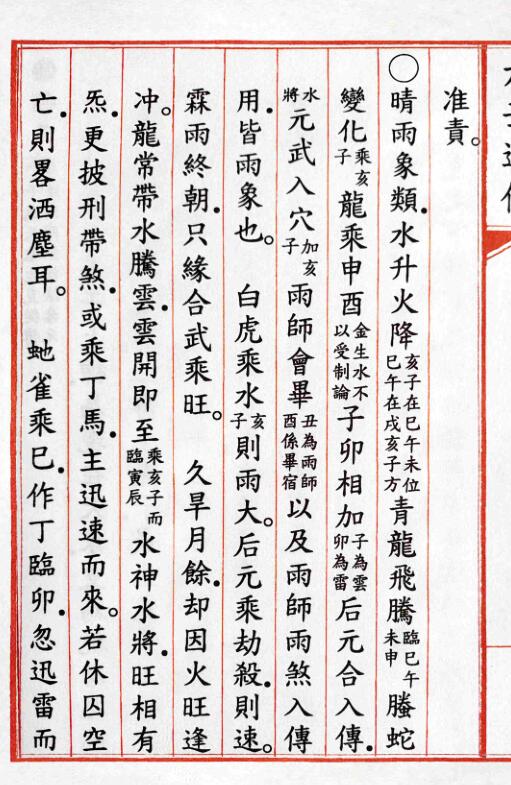 准責。
○晴雨象類。水升火降亥子在巳午未位巳午在戌亥子方青龍飛騰臨巳午未申螣蛇
變化乘亥子龍乘申酉金生水不以受制論子卯相加子為雲卯為雷后元合入傳。
水將元武入穴加亥子雨師會畢丑為雨師酉係畢宿以及雨師雨煞入傳
用。皆雨象也。　白虎乘水亥子則雨大。后元乘劫殺。則速。
霖雨終朝。只緣合武乘旺。　久旱月餘。却因火旺逢
冲。龍常帶水騰雲。雲開即至乘亥子而臨寅辰水神水將。旺相有
炁。更披刑帶煞。或乘丁馬。主迅速而來。若休囚空
亡。則畧洒塵耳。　虵雀乘巳。作丁臨卯。忽迅雷而